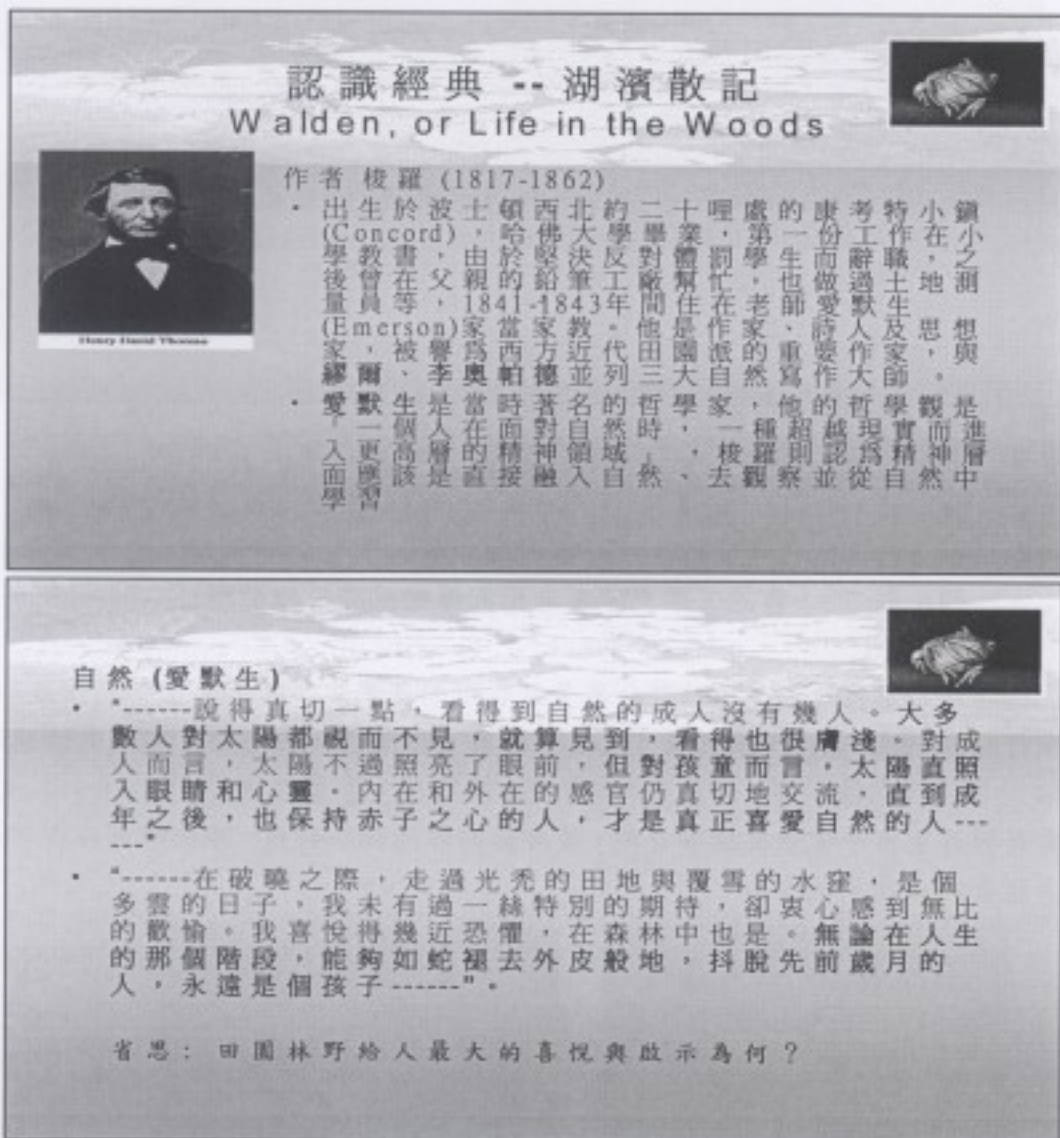 認識經典 -- 湖濱散記
Walden, or Life in the Woods
Henry David Thoreau
作者 梭羅 (1817-1862)
• 出生於波士頓西北約二十哩處的康考特小鎮
(Concord)，哈佛大學畢業，第一份工作在小
學教書，由於堅決反對體罰學生而辭職，之
後曾在父親的鉛筆工廠幫忙，也做過土地測
量員等，1841-1843年間住在老師愛默生
(Emerson)家當家教。他是作家、詩人及思想
家，被譽為西方近代田園派的重要作家，與
繆爾、李奧帕德並列三大自然寫作大師。
• 愛默生是當時著名的哲學家，他的哲學觀是
「一個人在面對自然時，一種超越現實而進
入更高層的精神領域」，梭羅則認為精神層
面應該是直接融入自然、去觀察並從自然中
學習
自然 (愛默生)
• "------說得真切一點，看得到自然的成人沒有幾人。大多
數人對太陽都視而不見，就算見到，看得也很膚淺。對成
人而言，太陽不過照亮了眼前，但對孩童而言，太陽直照
入眼睛和心靈。內在和外在的感官仍真切地交流，直到成
年之後，也保持赤子之心的人，才是真正喜愛自然的人---
---"
• "------在破曉之際，走過光禿的田地與覆雪的水窪，是個
多雲的日子，我未有過一絲特別的期待，卻衷心感到無比
的歡愉。我喜悅得幾近恐懼，在森林中也是。無論在人生
的那個階段，能夠如蛇褪去外皮般地，抖脫先前歲月的
人，永遠是個孩子------"。
省思: 田園林野給人最大的喜悅與啟示為何？